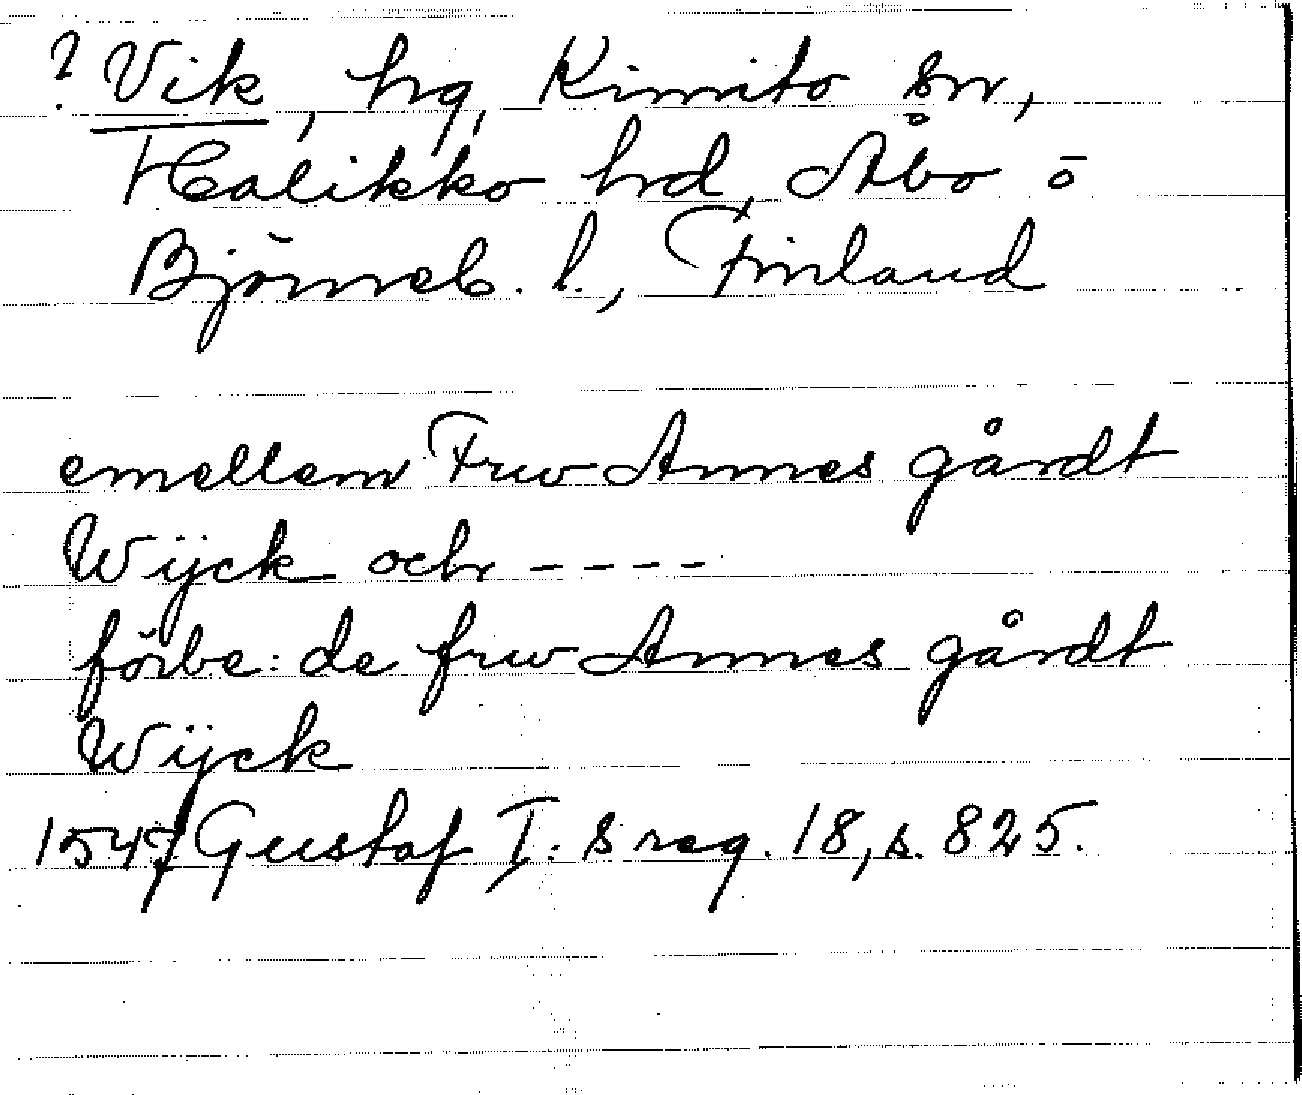 ? Vik, hg, Kimito sn,
Halikko hrd, Åbo o
Björneb. l., Finland
emellem Frw Annes gårdt
Wijck och ----
förbe: de frw Annes gårdt
Wijck
1547 Gustaf I: s reg. 18, s. 825.